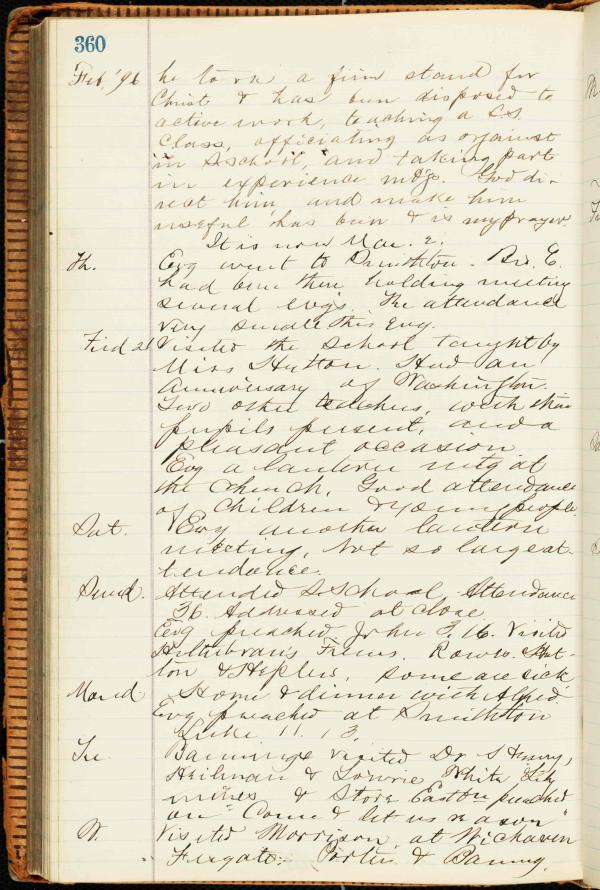 360
Feb. '96 he took a firm stand for
Christ & has been disposed to
active work, teaching a S.S.
Class, officiating as organist
in S. school, and taking part
in experience mtgs. God di-
rect him and make him
useful has been & is my prayer.
It is now Mar. 2.
Th. Evg went to Smithton. Bro. E.
had been there holding meeting
several evgs. The attendance
very small this Evg.
Frid 21 Visited the School taught by
Miss Hutton. Had an
Anniversary of Washington.
Two other teachers, with their
pupils present, and a
pleasant occasion
Evg a lantern mtg at
the Church. Good attendance
of children & young people.
Sat. Evg another lantern
meeting, Not so large at-
tendance.
Sund. Attended S. School. Attendance
36. Addressed at close
Evg preached John 3, 16. Visited
Frems. Hut-
ton & Heplers, some are sick.
Mond Home & dinner with
Evg preached at Smithton
Luke 11. 13.
Tu. visited Dr
Heilman & Lowrie White
mines & Store Easton preached
on "Come & let us reason"
W. Visited Morrison, at Wichaven
Porter &